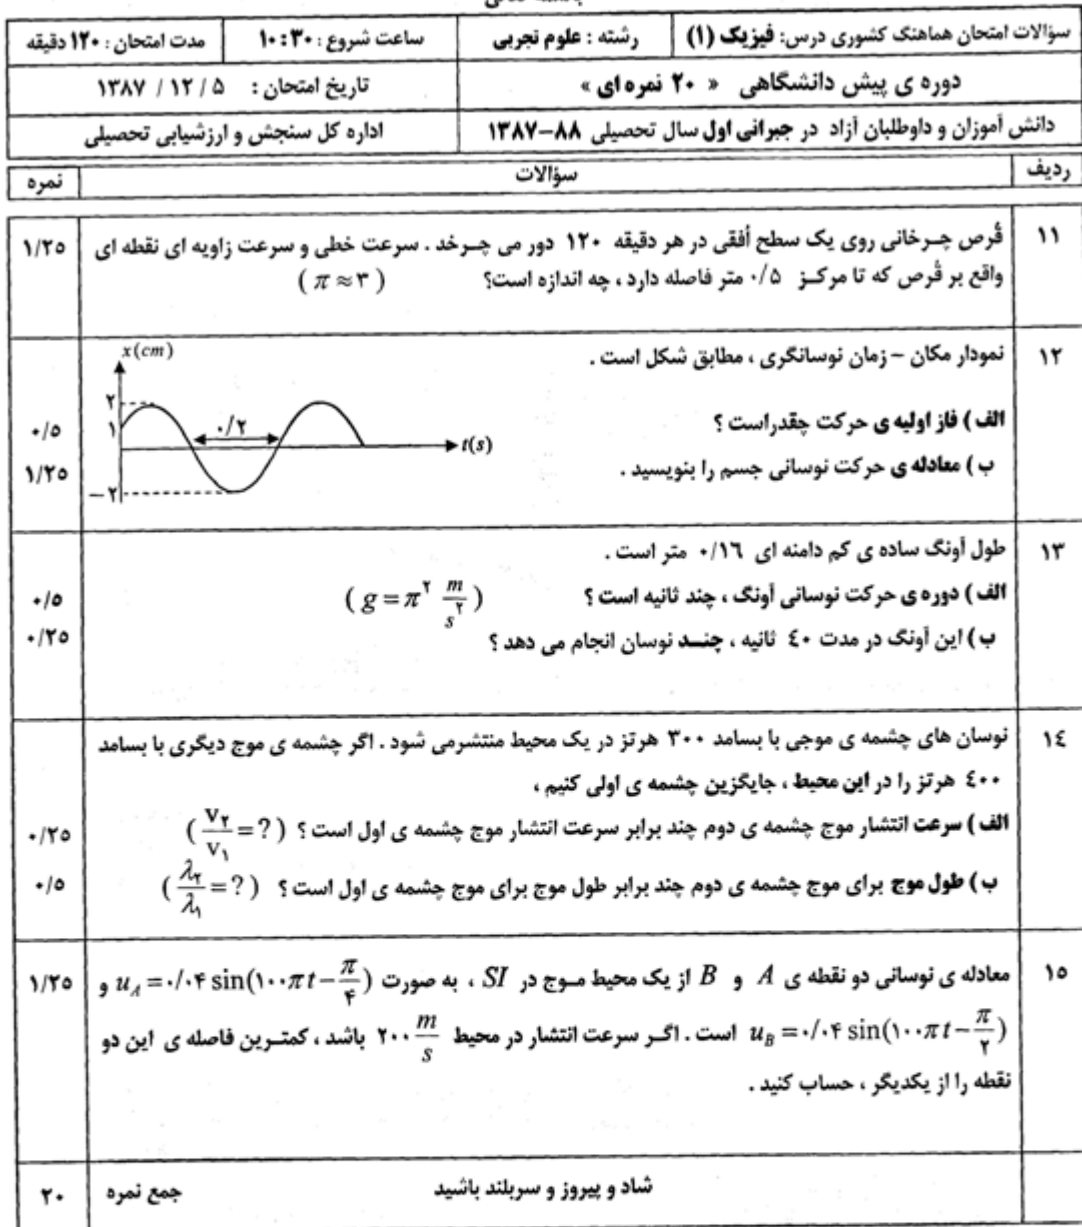 باسمه تعالی
سؤالات امتحان هماهنگ کشوری درس: فیزیک (۱) رشته : علوم تجربی ساعت شروع : ۱۰:۳۰ مدت امتحان : ۱۲۰ دقیقه
دوره ی پیش دانشگاهی « ۲۰ نمره ای » تاریخ امتحان : ۵ / ۱۲ / ۱۳۸۷
دانش آموزان و داوطلبان آزاد در جبرانی اول سال تحصیلی ۸۸-۱۳۸۷ اداره کل سنجش و ارزشیابی تحصیلی
ردیف سؤالات نمره
۱۱ قُرص چـرخانی روی یک سطح اُفقی در هر دقیقه ۱۲۰ دور می چـرخد . سرعت خطی و سرعت زاویه ای نقطه ای ۱/۲۵
واقع بر قُرص که تا مرکـز ۰/۵ متر فاصله دارد ، چه اندازه است؟ ( π ≈ ۳ )
۱۲ نمودار مکان – زمان نوسانگری ، مطابق شکل است .
x(cm)
۲
۱
۰/۲
t(s)
−۲
الف ) فاز اولیه ی حرکت چقدراست ؟ ۰/۵
ب ) معادله ی حرکت نوسانی جسم را بنویسید . ۱/۲۵
۱۳ طول آونگ ساده ی کم دامنه ای ۰/۱۶ متر است .
الف ) دوره ی حرکت نوسانی آونگ ، چند ثانیه است ؟ ( g = π^۲ m/s^۲ ) ۰/۵
ب ) این آونگ در مدت ۴۰ ثانیه ، چنـــد نوسان انجام می دهد ؟ ۰/۲۵
۱۴ نوسان های چشمه ی موجی با بسامد ۳۰۰ هرتز در یک محیط منتشرمی شود . اگر چشمه ی موج دیگری با بسامد
۴۰۰ هرتز را در این محیط ، جایگزین چشمه ی اولی کنیم ،
الف ) سرعت انتشار موج چشمه ی دوم چند برابر سرعت انتشار موج چشمه ی اول است ؟ ( v۲/v۱ = ? ) ۰/۲۵
ب ) طول موج برای موج چشمه ی دوم چند برابر طول موج برای موج چشمه ی اول است ؟ ( λ۲/λ۱ = ? ) ۰/۵
۱۵ معادله ی نوسانی دو نقطه ی A و B از یک محیط مـوج در SI ، به صورت u_A = ۰/۰۴ sin(۱۰۰π t − π/۴) و ۱/۲۵
u_B = ۰/۰۴ sin(۱۰۰π t − π/۲) است . اگـر سرعت انتشار در محیط ۲۰۰ m/s باشد ، کمتـرین فاصله ی این دو
نقطه را از یکدیگر ، حساب کنید .
شاد و پیروز و سربلند باشید جمع نمره ۲۰